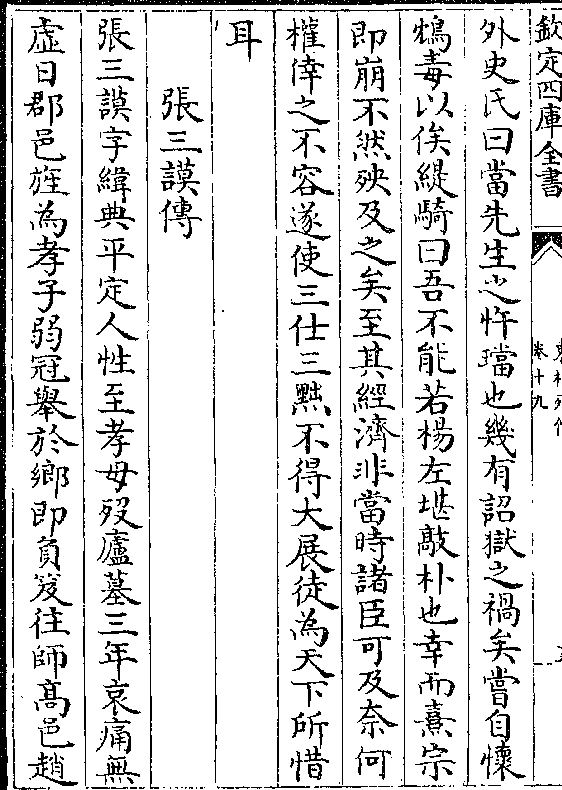 欽定四庫全書
卷十九
外史氏曰當先生之忤璫也幾有詔獄之禍矣嘗自懷
鴆毒以俟緹騎曰吾不能若楊左堪敲朴也幸而熹宗
即崩不然殃及之矣至其經濟非當時諸臣可及奈何
權倖之不容遂使三仕三黜不得大展徒為天下所惜
耳
張三謨傳
張三謨字緯典平定人性至孝母歿廬墓三年哀痛無
虛日郡邑旌為孝子弱冠舉於鄉即負笈往師高邑趙